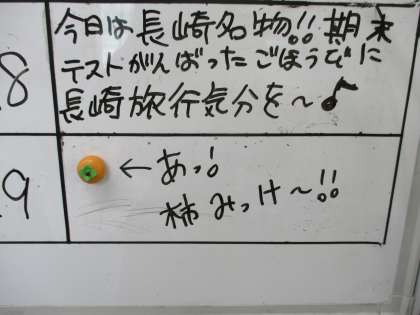 8
今日は長崎名物!! 期末
テストがんばったごほうびに
長崎旅行気分を～♪
9
←あっ!
柿みっけ～!!